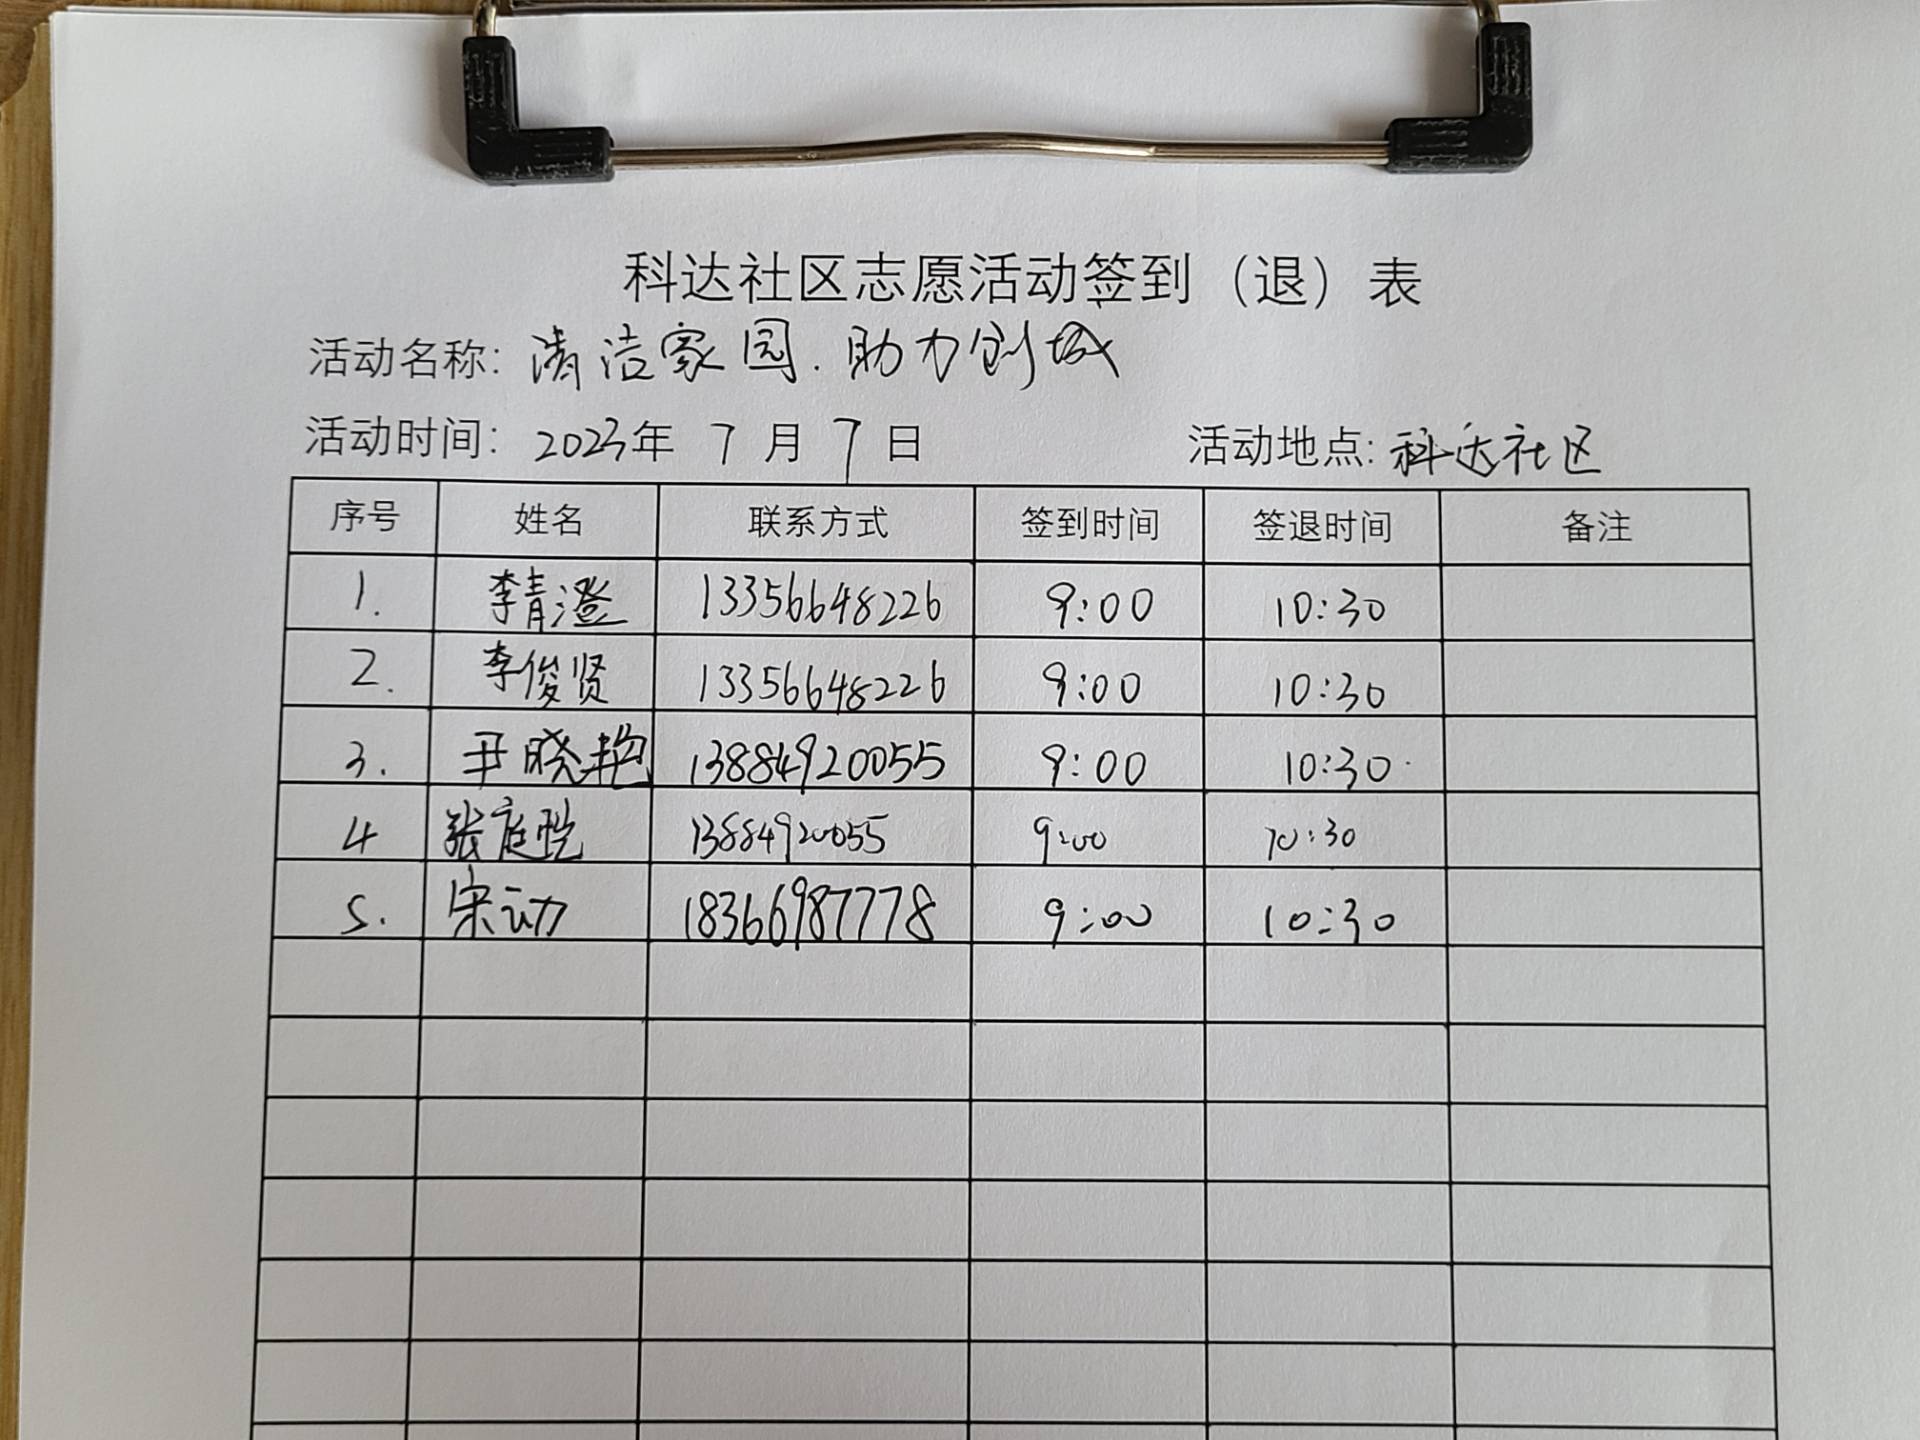 科达社区志愿活动签到（退）表
活动名称：清洁家园.助力创城
活动时间：2023年 7 月 7 日 活动地点:科达社区
序号 姓名 联系方式 签到时间 签退时间 备注
1. 李青澄 13356648226 9:00 10:30
2. 李俊贤 13356648226 9:00 10:30
3. 尹晓艳 13884920055 9:00 10:30
4 张庭 13884920055 9:00 10:30
5. 宋动 18366987778 9:00 10:30